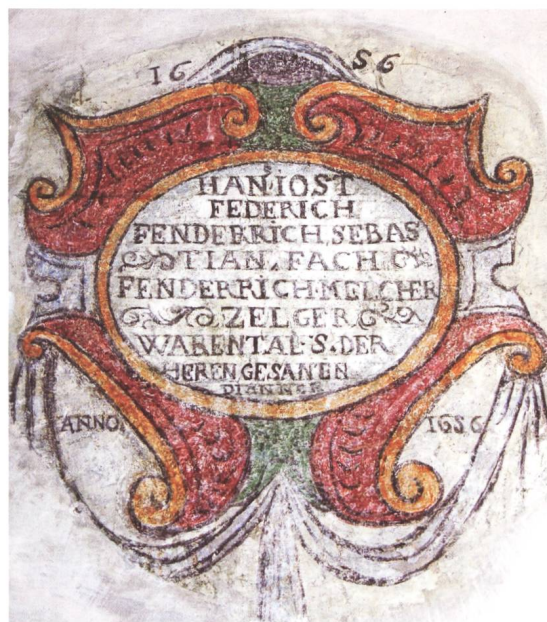 16 56
HANS IOST
FEDERICH
FENDERRICH. SEBAS
TIAN. FACH
FENDERRICH. MELCHER
ZELGER
WARENTAL. S. DER
HEREN GESANEN
DIANNER
ANNO 1656